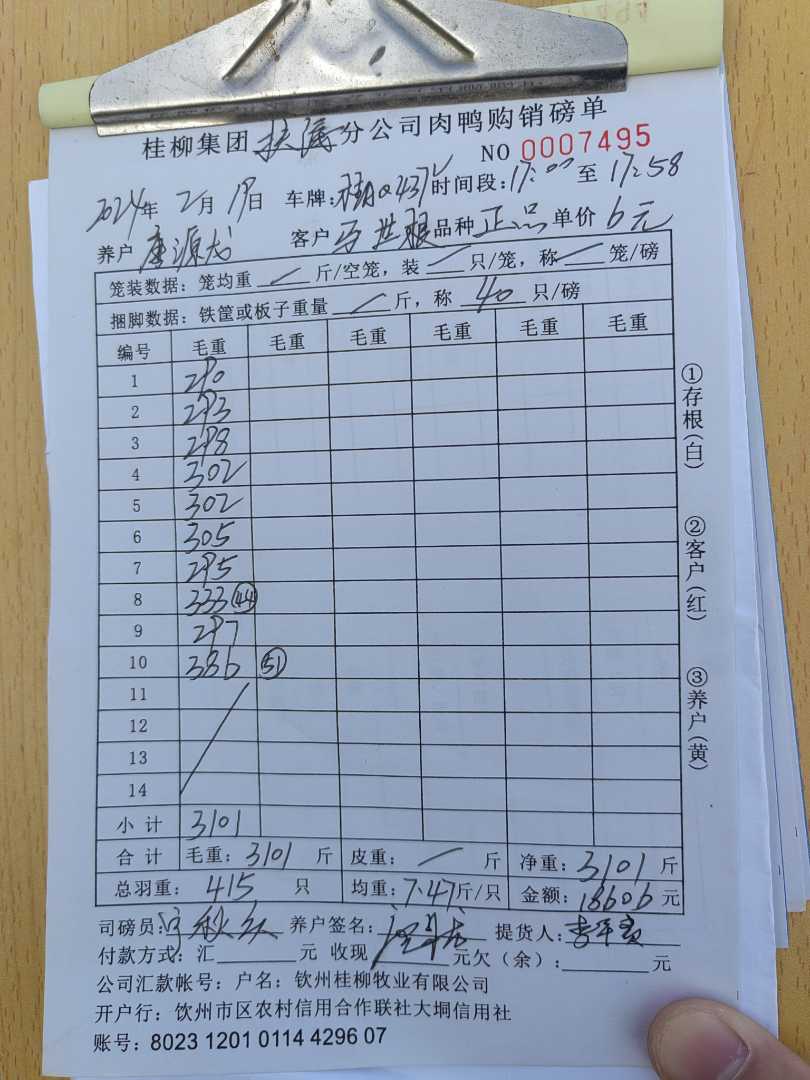 桂柳集团扶绥分公司肉鸭购销磅单
NO 0007495
2024年2月19日 车牌: 时间段:17:00至17:58
养户 唐源龙 客户 马世根 品种 正品 单价 6元
笼装数据: 笼均重 / 斤/空笼, 装 / 只/笼, 称 / 笼/磅
捆脚数据: 铁筐或板子重量 / 斤, 称 40 只/磅
编号 毛重 毛重 毛重 毛重 毛重 毛重
1 290
2 293
3 298
4 302
5 302
6 305
7 295
8 333 (44)
9 297
10 386 (51)
11
12
13
14
小计 3101
合计 毛重: 3101 斤 皮重: / 斤 净重: 3101 斤
总羽重: 415 只 均重: 7.47斤/只 金额: 18606 元
司磅员: 养户签名: 提货人:
付款方式: 汇 元 收现 元 欠(余): 元
公司汇款帐号: 户名: 钦州桂柳牧业有限公司
开户行: 钦州市区农村信用合作联社大垌信用社
账号: 8023 1201 0114 4296 07
①存根(白)
②客户(红)
③养户(黄)